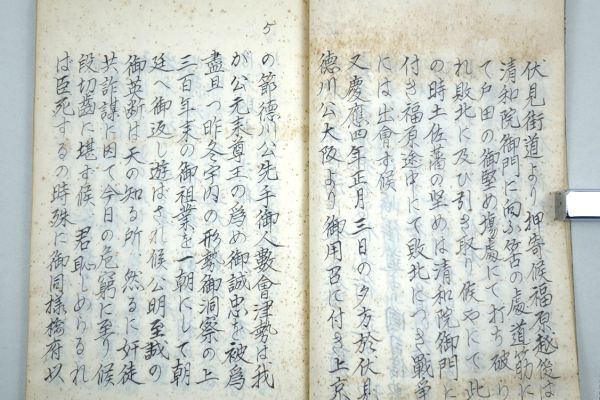 伏見街道より押寄候福原越後は
清和院御門に向ふ筈の處道筋に
て戸田の御堅め塲處にて打ち破ら
れ敗北に及び引き取り候やにて此
の時土佐藩の堅めは清和院御門に
付き福原途中にて敗北につき戰爭
には出會す候
又慶應四年正月三日の夕方於伏見
德川公大阪より御用召に付き上京
の節德川公先手御人數會津勢は我
が公元来尊王の爲め御誠忠を被爲
盡且つ昨冬宇内の形勢御洞察の上
三百年来の御祖業を一朝にして朝
廷へ御返し遊ばされ候公明至誠の
御英断は天の知る所然るに奸徒
共詐謀に因て今日の危窮に至り候
段切齒に堪す候 君恥しめらるれ
ば臣死するの時殊に御同様橋府以